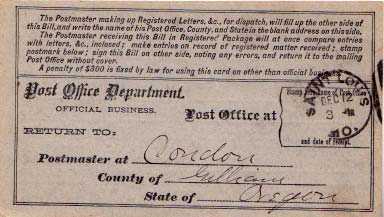 The Postmaster making up Registered Letters, &c., for dispatch, will fill up the other side of
this Bill, and write the name of his Post Office, County, and State in the blank address on this side.
The Postmaster receiving this Bill in Registered Package will at once compare entries
with letters, &c., inclosed; make entries on record of registered matter received; stamp
postmark below; sign this Bill on other side, noting any errors, and return it to the mailing
Post Office without cover.
A penalty of $300 is fixed by law for using this card on other than official business.
Post Office Department.
OFFICIAL BUSINESS.
Post Office at
RETURN TO:
SAINT LOUIS
DEC 12
3
MO.
and date of receipt.
Postmaster at Condon
County of Gilliam
State of Oregon